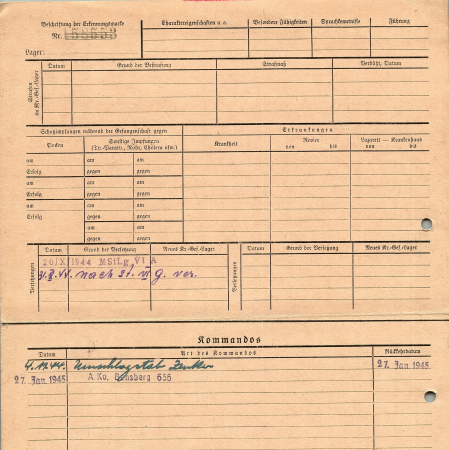 Beschriftung der Erkennungsmarke
Nr.
Lager:
Charaktereigenschaften u. a.
Besondere Fähigkeiten
Sprachkenntnisse
Führung
Strafen im Kr.-Gef.-Lager
Datum
Grund der Bestrafung
Strafmaß
Verbüßt, Datum
Schutzimpfungen während der Gefangenschaft gegen
Erkrankungen
Pocken
Sonstige Impfungen
(Ty. Paratyr., Ruhr, Cholera usw.)
Krankheit
Revier
von bis
Lazarett — Krankenhaus
von bis
am am am
Erfolg gegen gegen
am am am
Erfolg gegen gegen
am am am
Erfolg gegen gegen
am am
gegen gegen
Versetzungen
Datum
Grund der Versetzung
Neues Kr.-Gef.-Lager
Versetzungen
Datum
Grund der Versetzung
Neues Kr.-Gef.-Lager
20/X 1944 MStLg VI A
nach St. VI G. ver.
Kommandos
Datum
Art des Kommandos
Rückkehrdatum
4.11.44.
27. Jan. 1945
27. Jan. 1945
A.Ko. 656